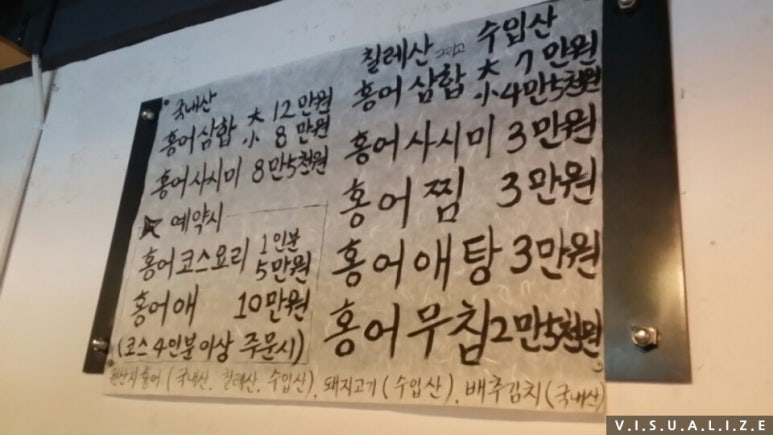 국내산
홍어삼합 大 12만원
小 8만원
홍어사시미 8만5천원
예약시
홍어코스요리 1인분
5만원
홍어애 10만원
(코스 4인분이상 주문시)
칠레산 그리고 수입산
홍어 삼합 大 7만원
小 4만5천원
홍어사시미 3만원
홍어 찜 3만원
홍어애탕 3만원
홍어무침 2만5천원
원산지 홍어 (국내산, 칠레산, 수입산), 돼지고기 (수입산), 배추김치 (국내산)
V.I.S.U.A.L.I.Z.E